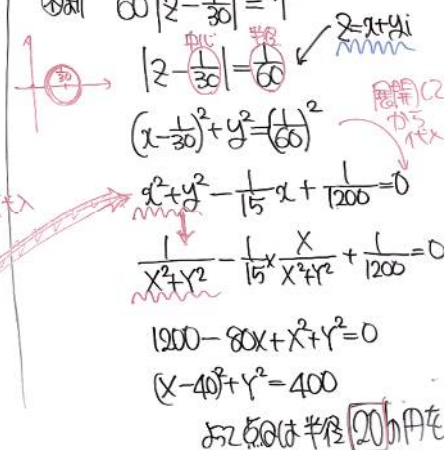 60|z-1/30|=1
z=x+yi
中心 半径
|z-1/30|=1/60
1/30
(x-1/30)²+y²=(1/60)²
展開して
から
代入
x²+y²-1/15x+1/1200=0
代入
1/(X²+Y²)-1/15×X/(X²+Y²)+1/1200=0
1200-80X+X²+Y²=0
(X-40)²+Y²=400
よって点Qは半径20の円を